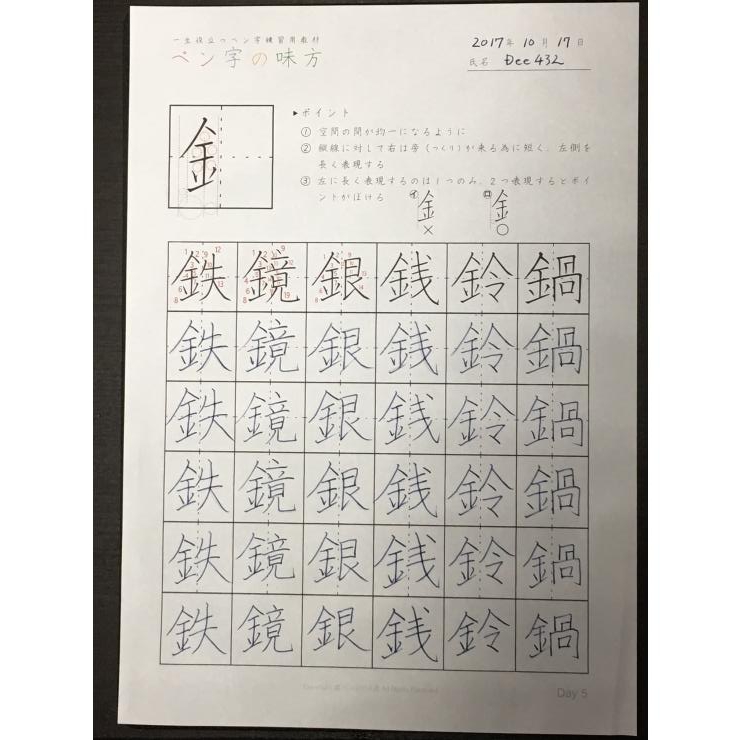 一生役立つペン字練習用教材
ペン字の味方
2017年 10月 17日
氏名 Dee432
金
▶ポイント
① 空間の間が均一になるように
② 縦線に対して右は旁(つくり)が来る為に短く、左側を
長く表現する
③ 左に長く表現するのは1つのみ、2つ表現するとポイ
ントがぼける
イ 金 ×
ロ 金 ○
鉄 鏡 銀 銭 鈴 鍋
鉄 鏡 銀 銭 鈴 鍋
鉄 鏡 銀 銭 鈴 鍋
鉄 鏡 銀 銭 鈴 鍋
鉄 鏡 銀 銭 鈴 鍋
鉄 鏡 銀 銭 鈴 鍋
Day 5